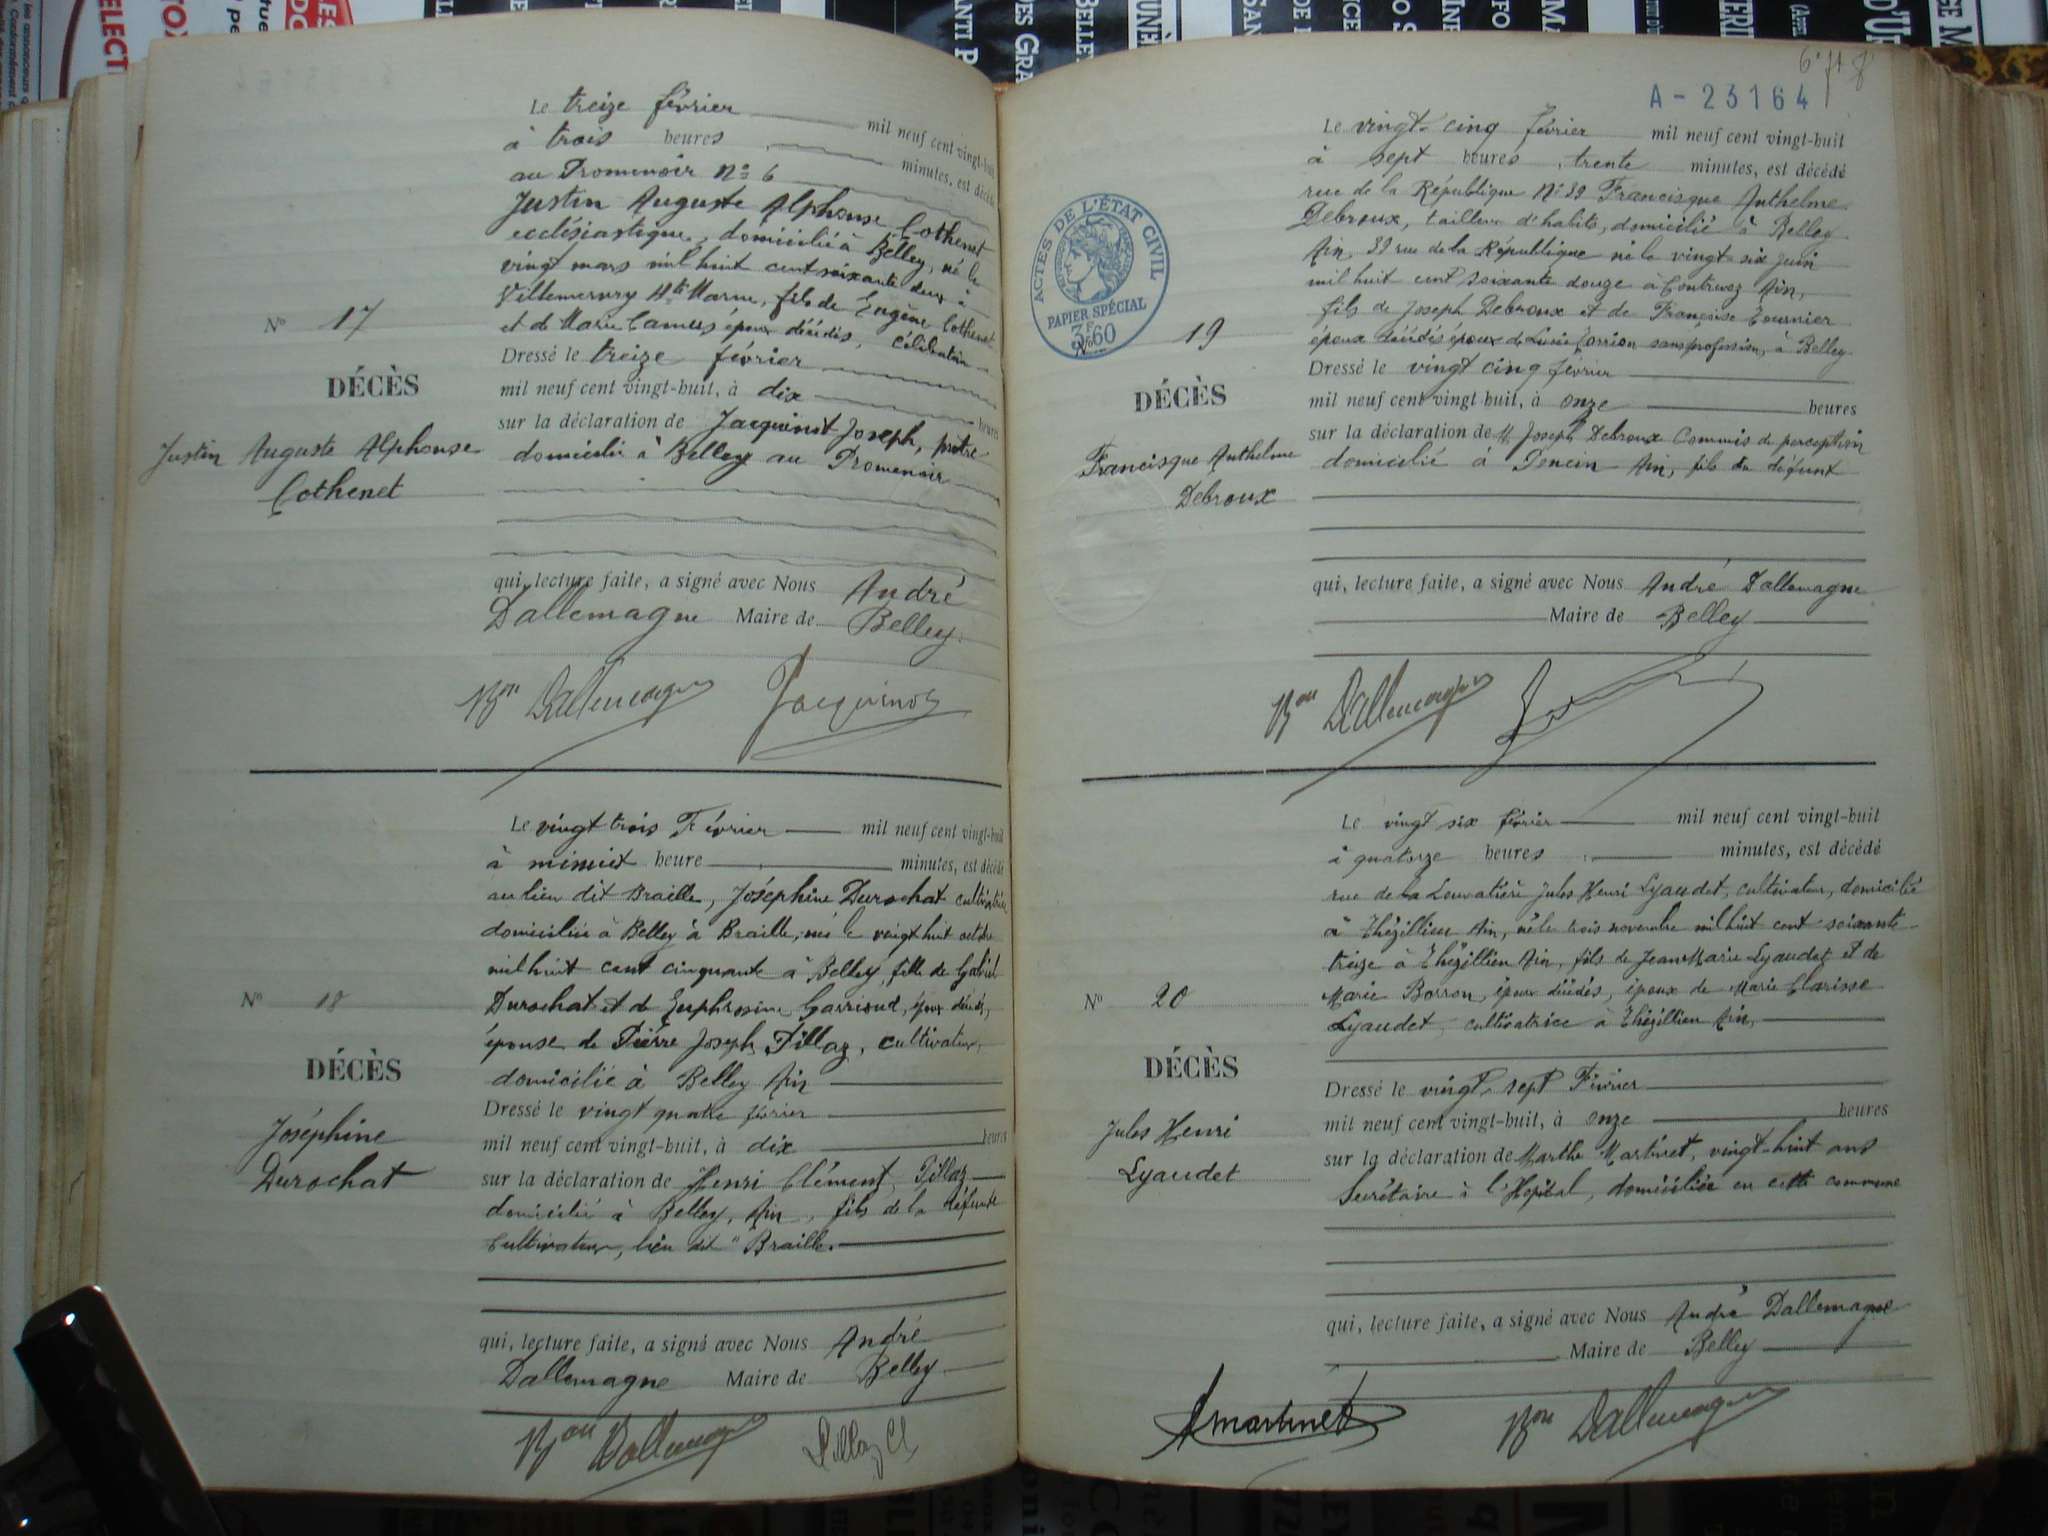 Le treize février mil neuf cent vingt-huit
à trois heures minutes, est décédé
au Promenoir No 6
Justin Auguste Alphonse Cothenet
ecclésiastique, domicilié à Belley, né le
vingt mars mil huit cent soixante deux à
Villemervry Hte Marne, fils de Eugène Cothenet
et de Marie Camus époux décédés, célibataire
Dressé le treize février
mil neuf cent vingt-huit, à dix heures
sur la déclaration de Jacquinot Joseph, prêtre
domicilié à Belley au Promenoir
No 17
DÉCÈS
Justin Auguste Alphonse
Cothenet
qui, lecture faite, a signé avec Nous André
Dallemagne Maire de Belley
Bon Dallemagne Jacquinot
Le vingt trois Février mil neuf cent vingt-huit
à minuit heure minutes, est décédé
au lieu dit Braille, Joséphine Durochat cultivatrice
domiciliée à Belley à Braille, née le vingt huit octobre
mil huit cent cinquante à Belley, fille de Gabriel
Durochat et de Euphrosine Garrioud, époux décédés,
épouse de Pierre Joseph Pillaz, cultivateur,
domicilié à Belley Ain
Dressé le vingt quatre février
mil neuf cent vingt-huit, à dix heures
sur la déclaration de Henri Clément Pillaz
domicilié à Belley, Ain, fils de la défunte
Cultivateur, lieu dit "Braille.
No 18
DÉCÈS
Joséphine
Durochat
qui, lecture faite, a signé avec Nous André
Dallemagne Maire de Belley
Bon Dallemagne Pillaz Cl
A-23164
ACTES DE L'ÉTAT CIVIL
PAPIER SPÉCIAL
3F60
Le vingt-cinq février mil neuf cent vingt-huit
à sept heures trente minutes, est décédé
rue de la République No 39 Francisque Anthelme
Debroux, tailleur d'habits, domicilié à Belley
Ain, 39 rue de la République né le vingt-six juin
mil huit cent soixante douze à Contrevoz Ain,
fils de Joseph Debroux et de Françoise Tournier
époux décédés époux de Lucie sans profession, à Belley
Dressé le vingt cinq février
mil neuf cent vingt-huit, à onze heures
sur la déclaration de M. Joseph Debroux Commis de perception
domicilié à Ain, fils du défunt
No 19
DÉCÈS
Francisque Anthelme
Debroux
qui, lecture faite, a signé avec Nous André Dallemagne
Maire de Belley
Bon Dallemagne
Le vingt six février mil neuf cent vingt-huit
à quatorze heures minutes, est décédé
rue de la Jules Henri Lyaudet, cultivateur, domicilié
à Thézillieu Ain, né le trois novembre mil huit cent soixante-
treize à Thézillieu Ain, fils de Jean Marie Lyaudet et de
Marie Borron, époux décédés, époux de Marie Clarisse
Lyaudet, cultivatrice à Thézillieu Ain,
Dressé le vingt-sept Février
mil neuf cent vingt-huit, à onze heures
sur la déclaration de Marthe Martinet, vingt-huit ans
Secrétaire à l'Hopital, domiciliée en cette commune
No 20
DÉCÈS
Jules Henri
Lyaudet
qui, lecture faite, a signé avec Nous André Dallemagne
Maire de Belley
Martinet Bon Dallemagne